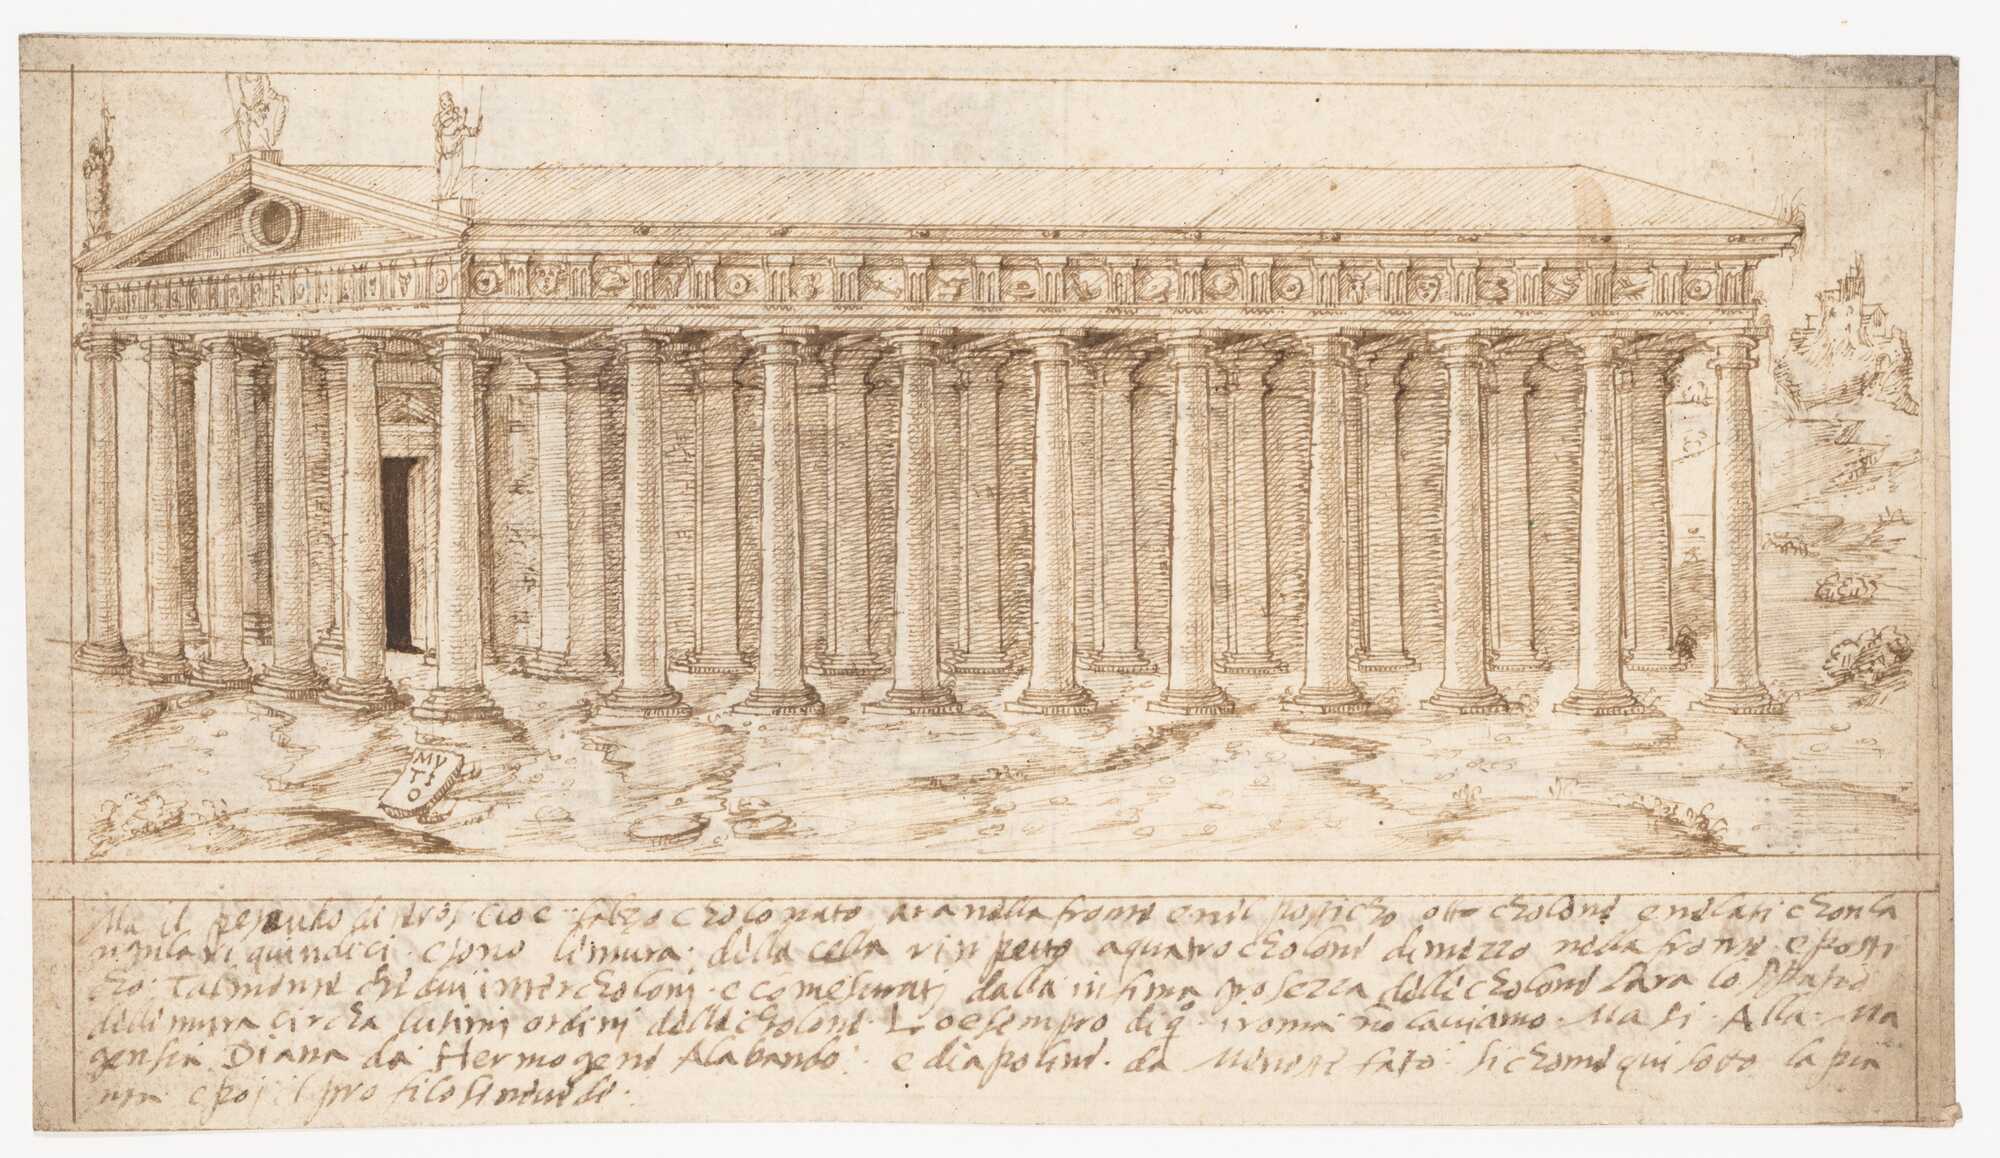 MV
TI
O
Ma il pseudo dipteros cioe falzo cholonato ara nella fronte e nel posticho otto cholone e ne lati chon la
ngulari quindici e sono le mura della cella rin petto a quatro cholone di mezzo nella fronte e posti
cho Talmente che dui intercholonj e comesurati dalla infima grosezza delle cholone sara lo spatio
delle mura circha lutimi ordini delle cholone Lo esempro di q° i roma nō laviamo Ma si Alla Ma
gensia Diana da Hermogene Alabando e di apoline da Meneste fato sichome qui soto la pia
nta e poj il profilo se ne vede